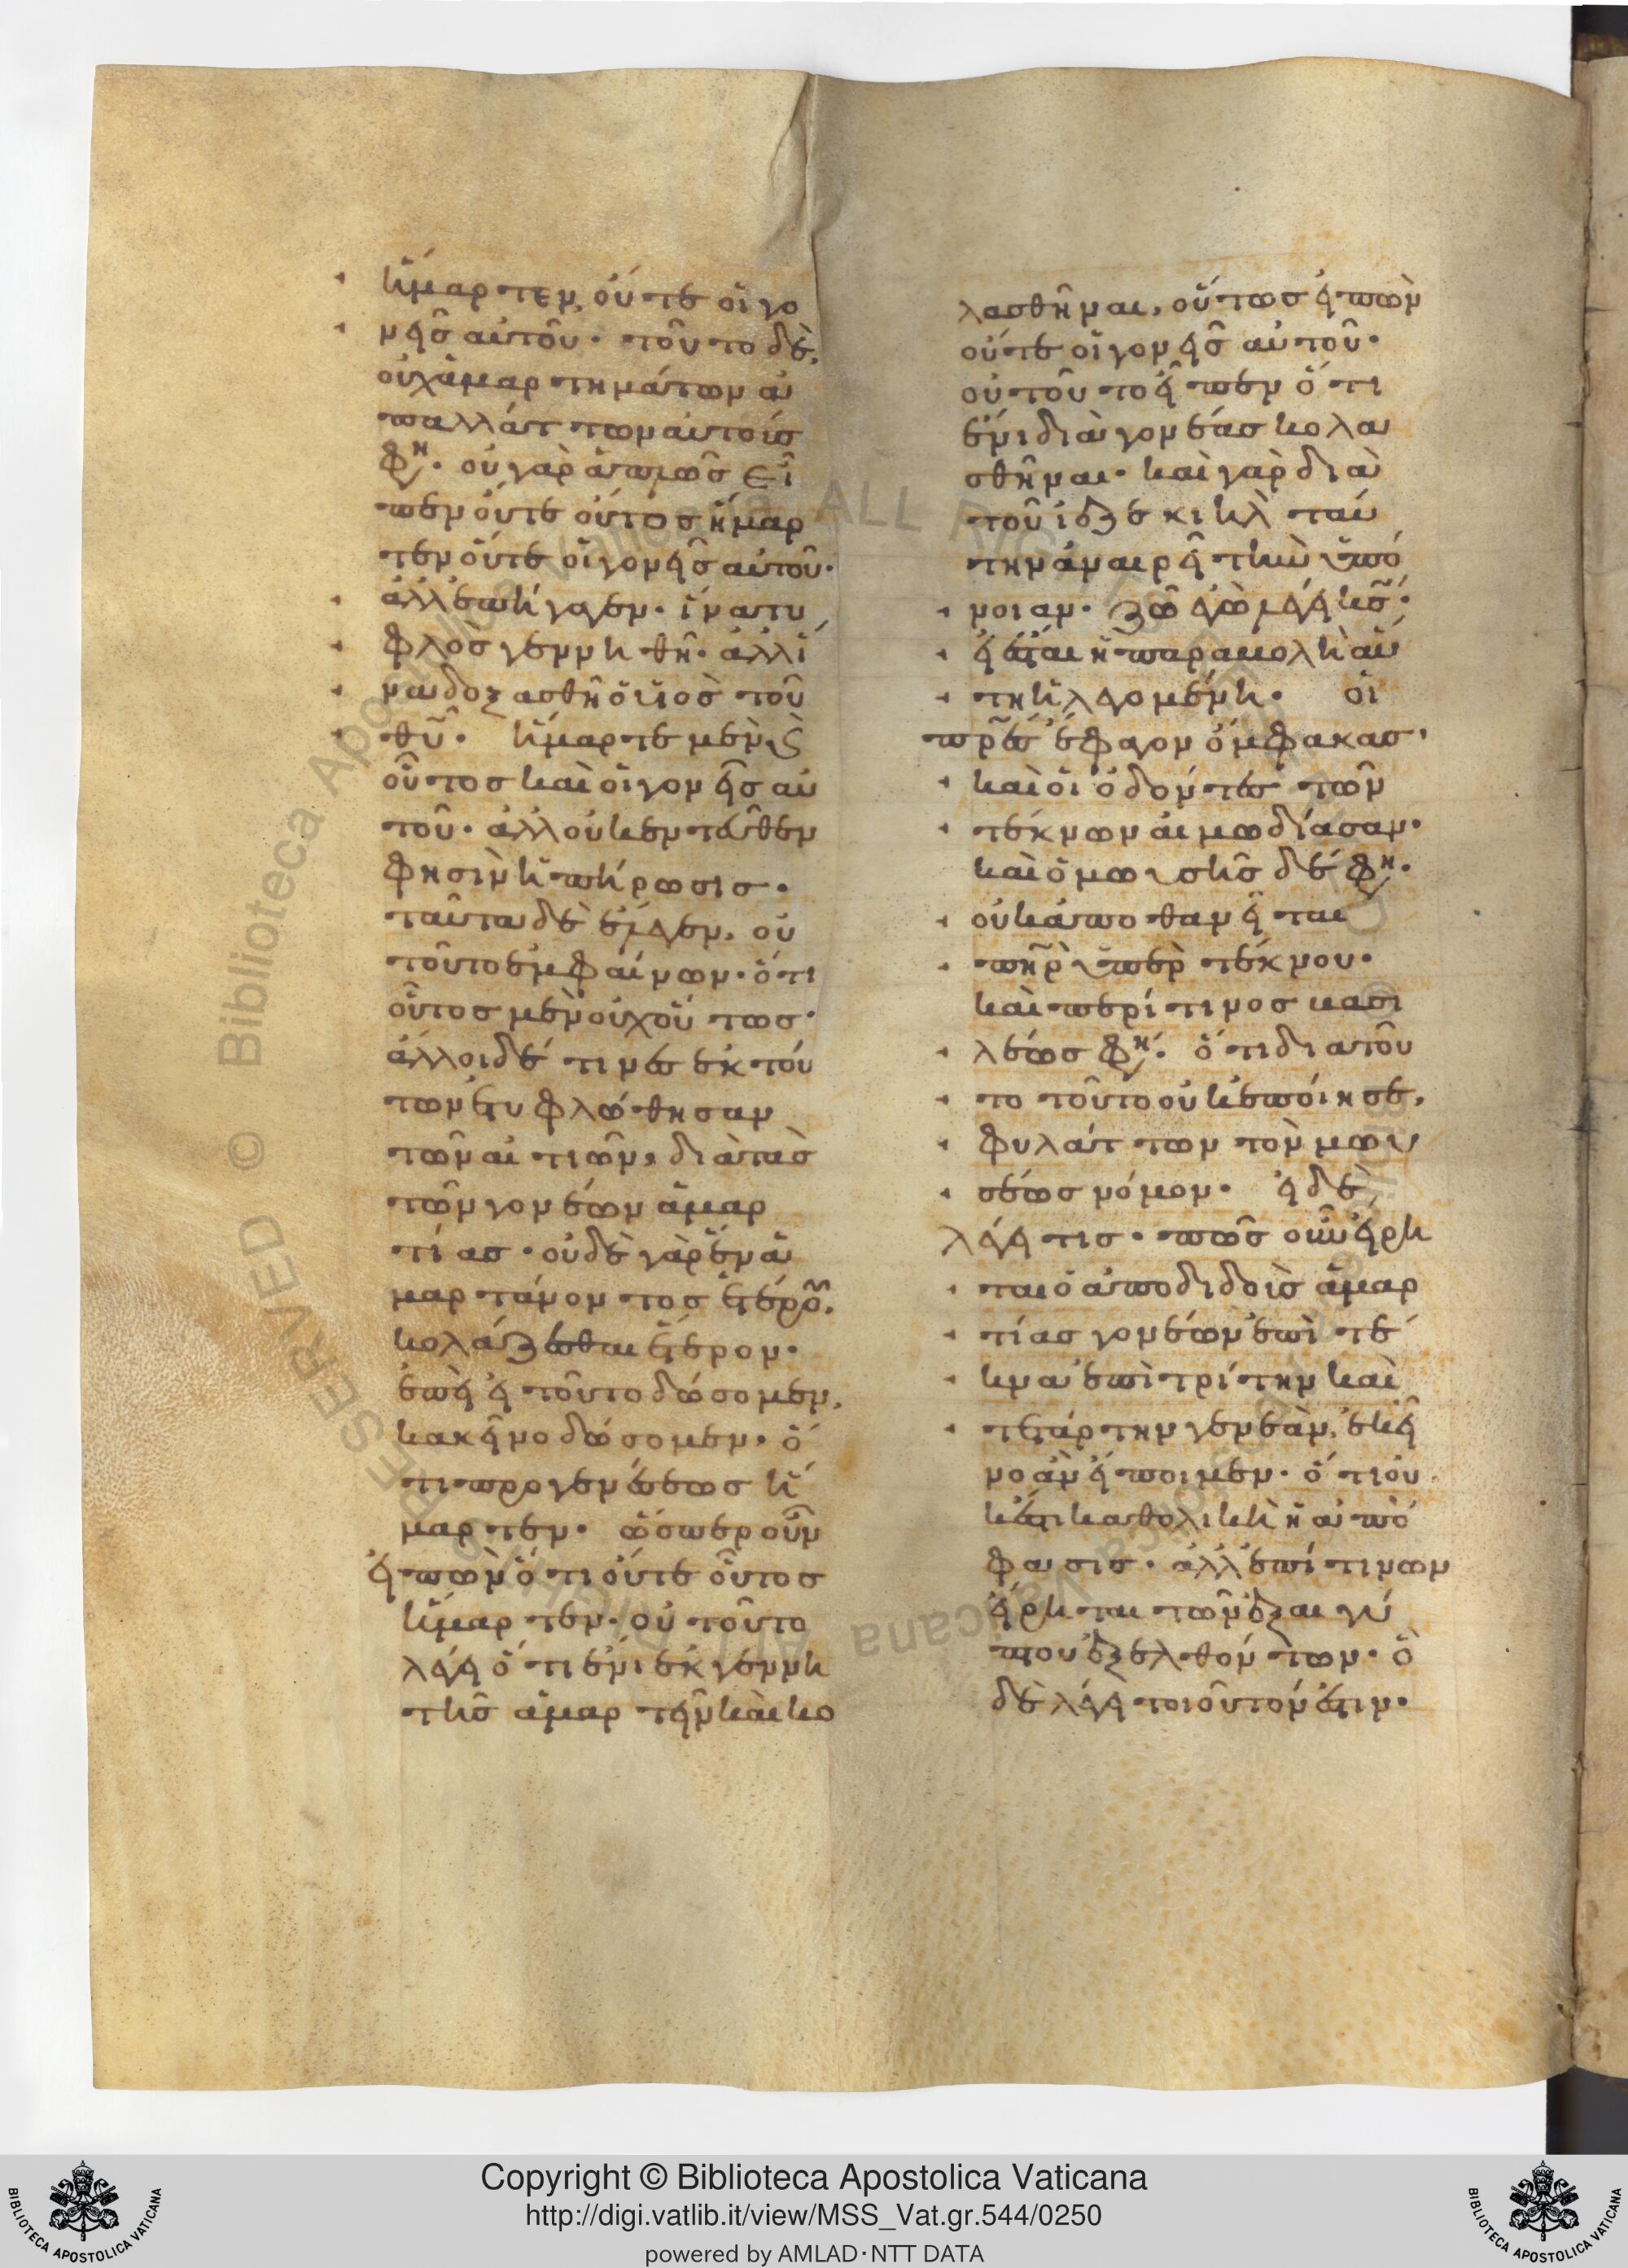 ἥμαρτεν, οὔτε οἱ γο
νεῖς αὐτοῦ· τοῦτο δὲ,
οὐχ ἁμαρτημάτων ἀ
παλλάττων αὐτούς
φη· οὐ γὰρ ἁπλῶς εἶ
πεν οὔτε οὗτος ἥμαρ
τεν οὔτε οἱ γονεῖς αὐτοῦ·
ἀλλ' ἐπήγαγεν· ἵνα τυ
φλὸς γεννηθῆ· ἀλλ' ἵ
να δοξασθῆ ὁ υἱὸς τοῦ
θυ· ἥμαρτε μὲν γὰρ
οὗτος καὶ οἱ γονεῖς αὐ
τοῦ· ἀλλ' οὐκ ἐνταῦθεν
φησὶν ἡ πήρωσις·
ταῦτα δὲ ἔλεγεν, οὐ
τοῦτο ἐμφαίνων· ὅτι
οὗτος μὲν οὐχ οὕτως·
ἄλλοι δέ τινες ἐκ τού
των ἐτυφλώθησαν
τῶν αἰτιῶν, διὰ τὰς
τῶν γονέων ἁμαρ
τίας· οὐδὲ γὰρ ἔνι ἁ
μαρτάνοντος ἑτέρου,
κολάζεσθαι ἕτερον·
ἐπεὶ εἰ τοῦτο δώσομεν,
κακεῖνο δώσομεν· ὅ
τι προ γενέσεως ἥ
μαρτεν· ὥσπερ οὖν
εἰπὼν ὅτι οὔτε οὗτος
ἥμαρτεν· οὐ τοῦτο
λέγει ὅτι ἔνι ἐκ γεννη
τῆς ἁμαρτεῖν καὶ κο
λασθῆναι, οὕτως εἰπὼν
οὔτε οἱ γονεῖς αὐτοῦ·
οὐ τοῦτο εἶπεν ὅτι
ἔνι διὰ γονέας κολα
σθῆναι· καὶ γὰρ διὰ
τοῦ ἰεζεκιὴλ ταύ
την ἀναιρεῖ τὴν ὑπό
νοιαν· ζῶ ἐγὼ λέγει κς·
εἰ ἔσται ἡ παραβολὴ αὕ
τη ἡ λεγομένη· οἱ
πρες ἔφαγον ὄμφακας·
καὶ οἱ ὀδόντες τῶν
τέκνων αἱμωδίασαν·
καὶ ὁ μωυσῆς δέ φη·
οὐκ ἀποθανεῖται
πηρ ὑπὲρ τέκνου·
καὶ περί τινος βασι
λέως φη· ὅτι δια τοῦ
το τοῦτο οὐκ ἐποίησε,
φυλάττων τὸν μωυ
σέως νόμον· εἰ δὲ
λέγει τις· πῶς οὖν εἴρη
ται ὁ ἀποδιδοὺς ἁμαρ
τίας γονέων ἐπὶ τέ
κνα ἐπὶ τρίτην καὶ
τετάρτην γενεὰν, ἐκεῖ
νο ἂν εἴποιμεν· ὅτι οὐ
κ ἔστι καθολικὴ ἡ ἀπό
φασις· ἀλλ' ἐπί τινων
εἴρηται τῶν ἐξ αἰγύ
πτου ἐξελθόντων· ὃ
δὲ λέγει τοιοῦτον ἔστιν·
Copyright © Biblioteca Apostolica Vaticana
http://digi.vatlib.it/view/MSS_Vat.gr.544/0250
powered by AMLAD·NTT DATA